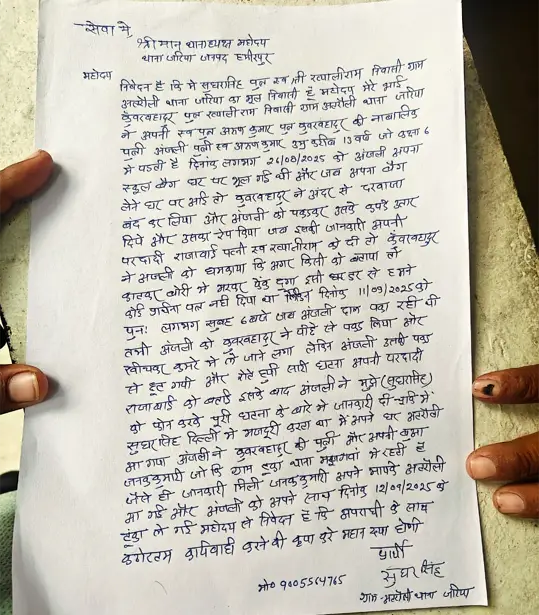 सेवा में
श्रीमान थानाध्यक्ष महोदय
थाना जरिया जनपद हमीरपुर
महोदय
निवेदन है कि मैं सुघरसिंह पुत्र स्व श्री रत्पालीराम निवासी ग्राम
अतरौली थाना जरिया का मूल निवासी हूँ महोदय मेरे भाई
कुंवरबहादुर पुत्र रत्पालीराम निवासी ग्राम अतरौली थाना जरिया
ने अपनी स्व पुत्र अरुण कुमार पुत्र कुंवरबहादुर की नाबालिक
पुत्री अंजली पुत्री स्व अरुणकुमार उम्र करीब 13 वर्ष जो कक्षा 6
में पढती है दिनांक लगभग 26/08/2025 को अंजली अपना
स्कूल बैग घर पर भूल गई थी और जब अपना बैग
लेने घर पर आई तो कुंवरबहादुर ने अंदर से दरवाजा
बंद कर लिया और अंजली को पकड़कर उसके कपड़े उतार
दिये और उसका रेप किया जब इसकी जानकारी अपनी
परदादी राजाबाई पत्नी स्व रत्पालीराम को दी तो कुंवरबहादुर
ने अंजली को धमकाया कि अगर किसी को बताया तो
काटकर बोरी में भरकर फेंक दूंगा इसी डर से हमने
कोई प्रार्थना पत्र नहीं दिया था लेकिन दिनांक 11/09/2025 को
पुनः लगभग सुबह 6 बजे जब अंजली दाल पका रही थी
तभी अंजली को कुंवरबहादुर ने पीछे से पकड़ लिया और
खींचकर कमरे में ले जाने लगा लेकिन अंजली उसकी पकड़
से छूट गयी और रोते हुयी सारी घटना अपनी परदादी
राजाबाई को बताई इसके बाद अंजली ने मुझे (सुघरसिंह)
को फोन करके पूरी घटना के बारे में जानकारी दी चूंकि मैं
सुघरसिंह दिल्ली में मजदूरी करता था मैं अपने घर अतरौली
आ गया अंजली ने कुंवरबहादुर की पुत्री और अपनी बुआ
जनककुमारी जो कि ग्राम इटवा थाना मझगवां में रहती है
जैसे ही जानकारी मिली जनककुमारी अपने मायके अतरौली
आ गई और अंजली को अपने साथ दिनांक 12/09/2025 को
ले गई महोदय से निवेदन है कि अपराधी के साथ
कठोरतम कार्यवाही करने की कृपा करें महान दया होगी
प्रार्थी
सुघर सिंह
मो० 9005564765
ग्राम-अतरौली थाना जरिया